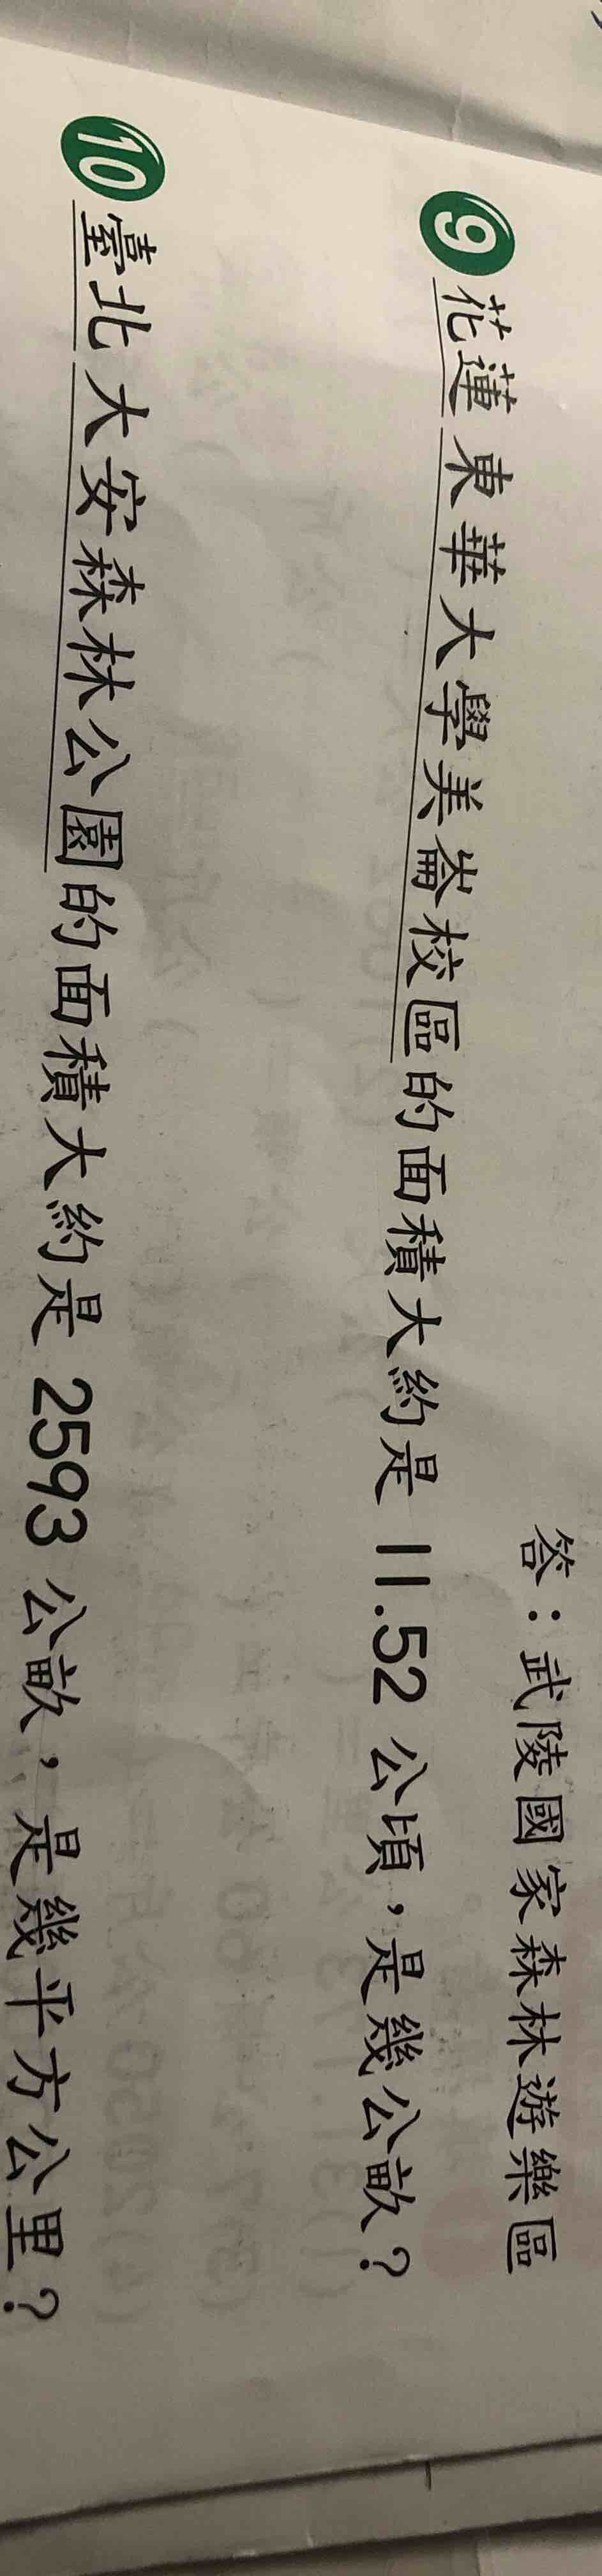 答：武陵國家森林遊樂區
9 花蓮東華大學美崙校區的面積大約是 11.52 公頃，是幾公畝？
10 臺北大安森林公園的面積大約是 2593 公畝，是幾平方公里？